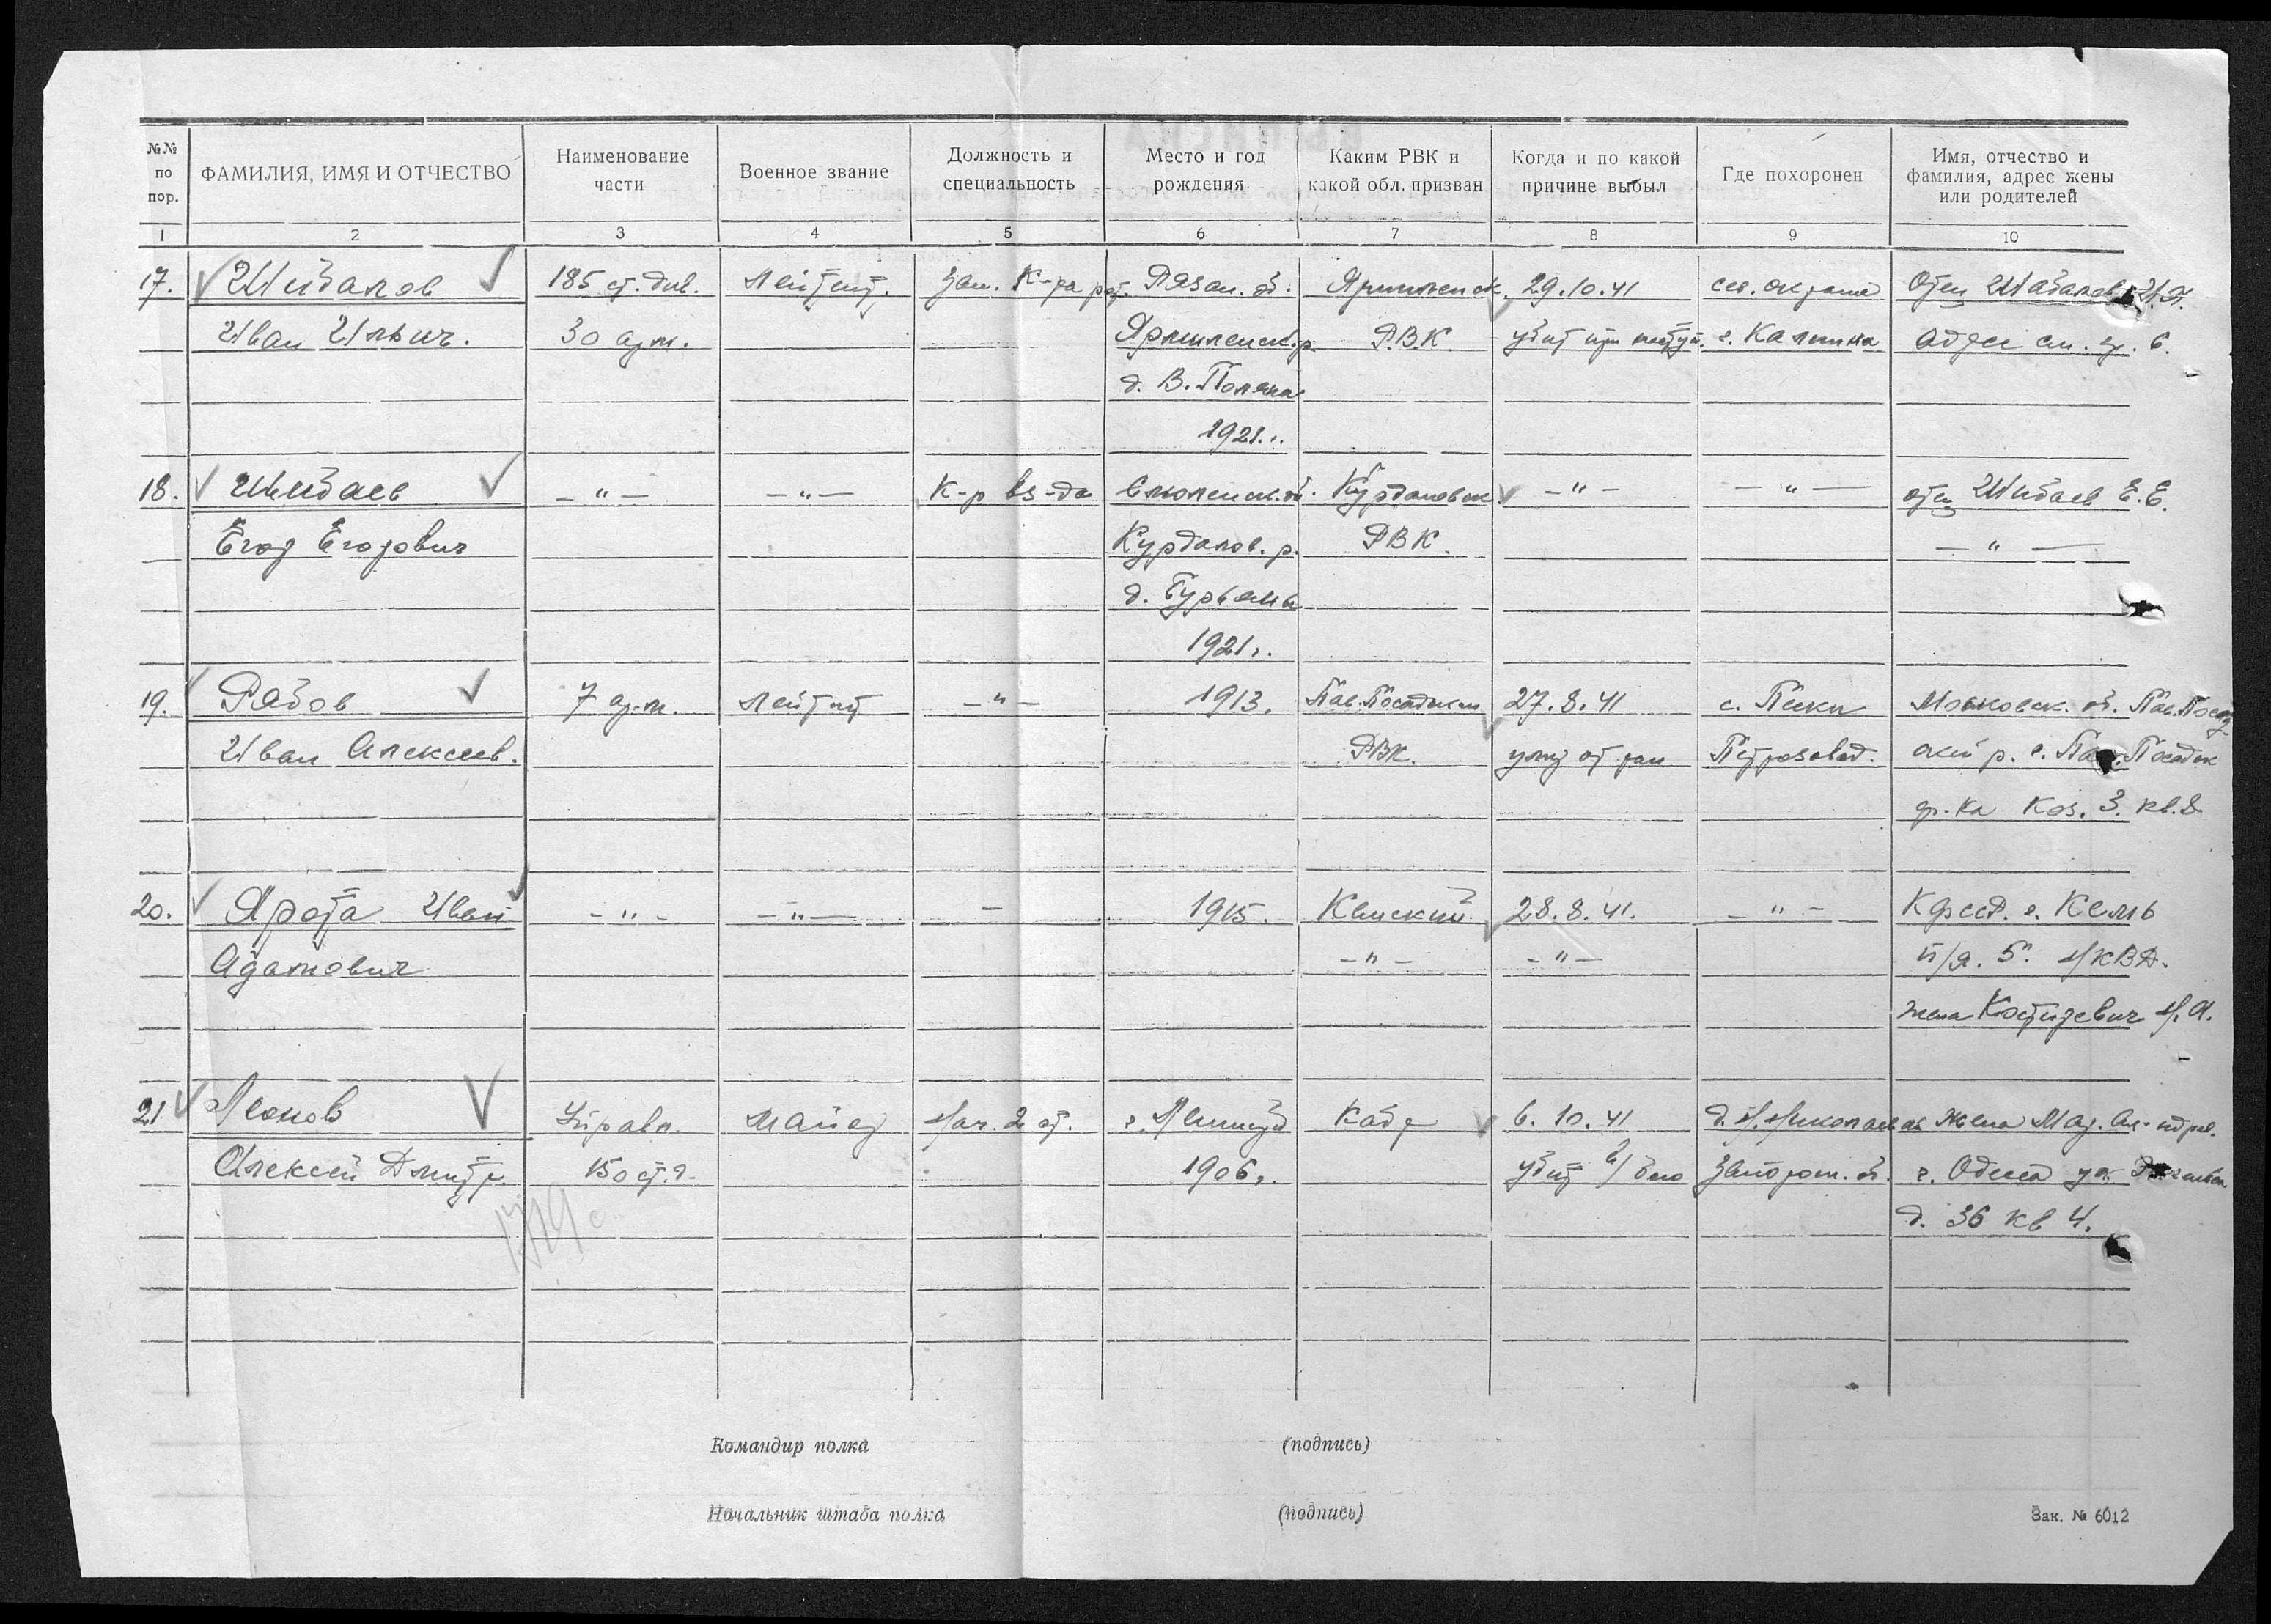 №№ по пор. | ФАМИЛИЯ, ИМЯ И ОТЧЕСТВО | Наименование части | Военное звание | Должность и специальность | Место и год рождения | Каким РВК и какой обл. призван | Когда и по какой причине выбыл | Где похоронен | Имя, отчество и фамилия, адрес жены или родителей
1 | 2 | 3 | 4 | 5 | 6 | 7 | 8 | 9 | 10
17. Шибалов 185 ст. див. Лейтент. Зам. К-ра рот. Рязан. об. 29.10.41 сев. окраина Отец
Иван Ильич. 30 ар.м. Ярмиленск. р. РВК убит при г. Калинина Адрес см. гр. 6.
д. В. Поляна
1921 г.
18. Шибаев — " — — " — К-р вз-да Смоленск. об. — " — — " — отец Шибаев Е.Е.
Егор Егорович Курдапов. р. РВК. — " —
д.
1921 г.
19. Рябов 7 ар.м. лейтнт — " — 1913. Пав. Посадским 27.8.41 с. Пески Московск. об. Пав. Посад
Иван Алексеев. РВК. умер от ран Петрозавод. ский р. г. Пав. Посад
ф-ка Каз. 3. кв. 8
20. Ярота Иван — " — — " — — 1915. Кемский 28.8.41. — " — КФССР. г. Кемь
Адамович — " — — " — п/я. 5. НКВД.
жена Н.А.
21 Леонов Управл. майор Нач. 2 от. г. Ленингрд Кадр 6.10.41 д. Н. Николаевка Жена Мар. Ал-ндров.
Алексей Дмитр. 150 ст. д. 1906 г. убит в/бою Запорож. об. г. Одесса ул.
д. 36 кв 4.
Командир полка (подпись)
Начальник штаба полка (подпись) Зак. № 6012